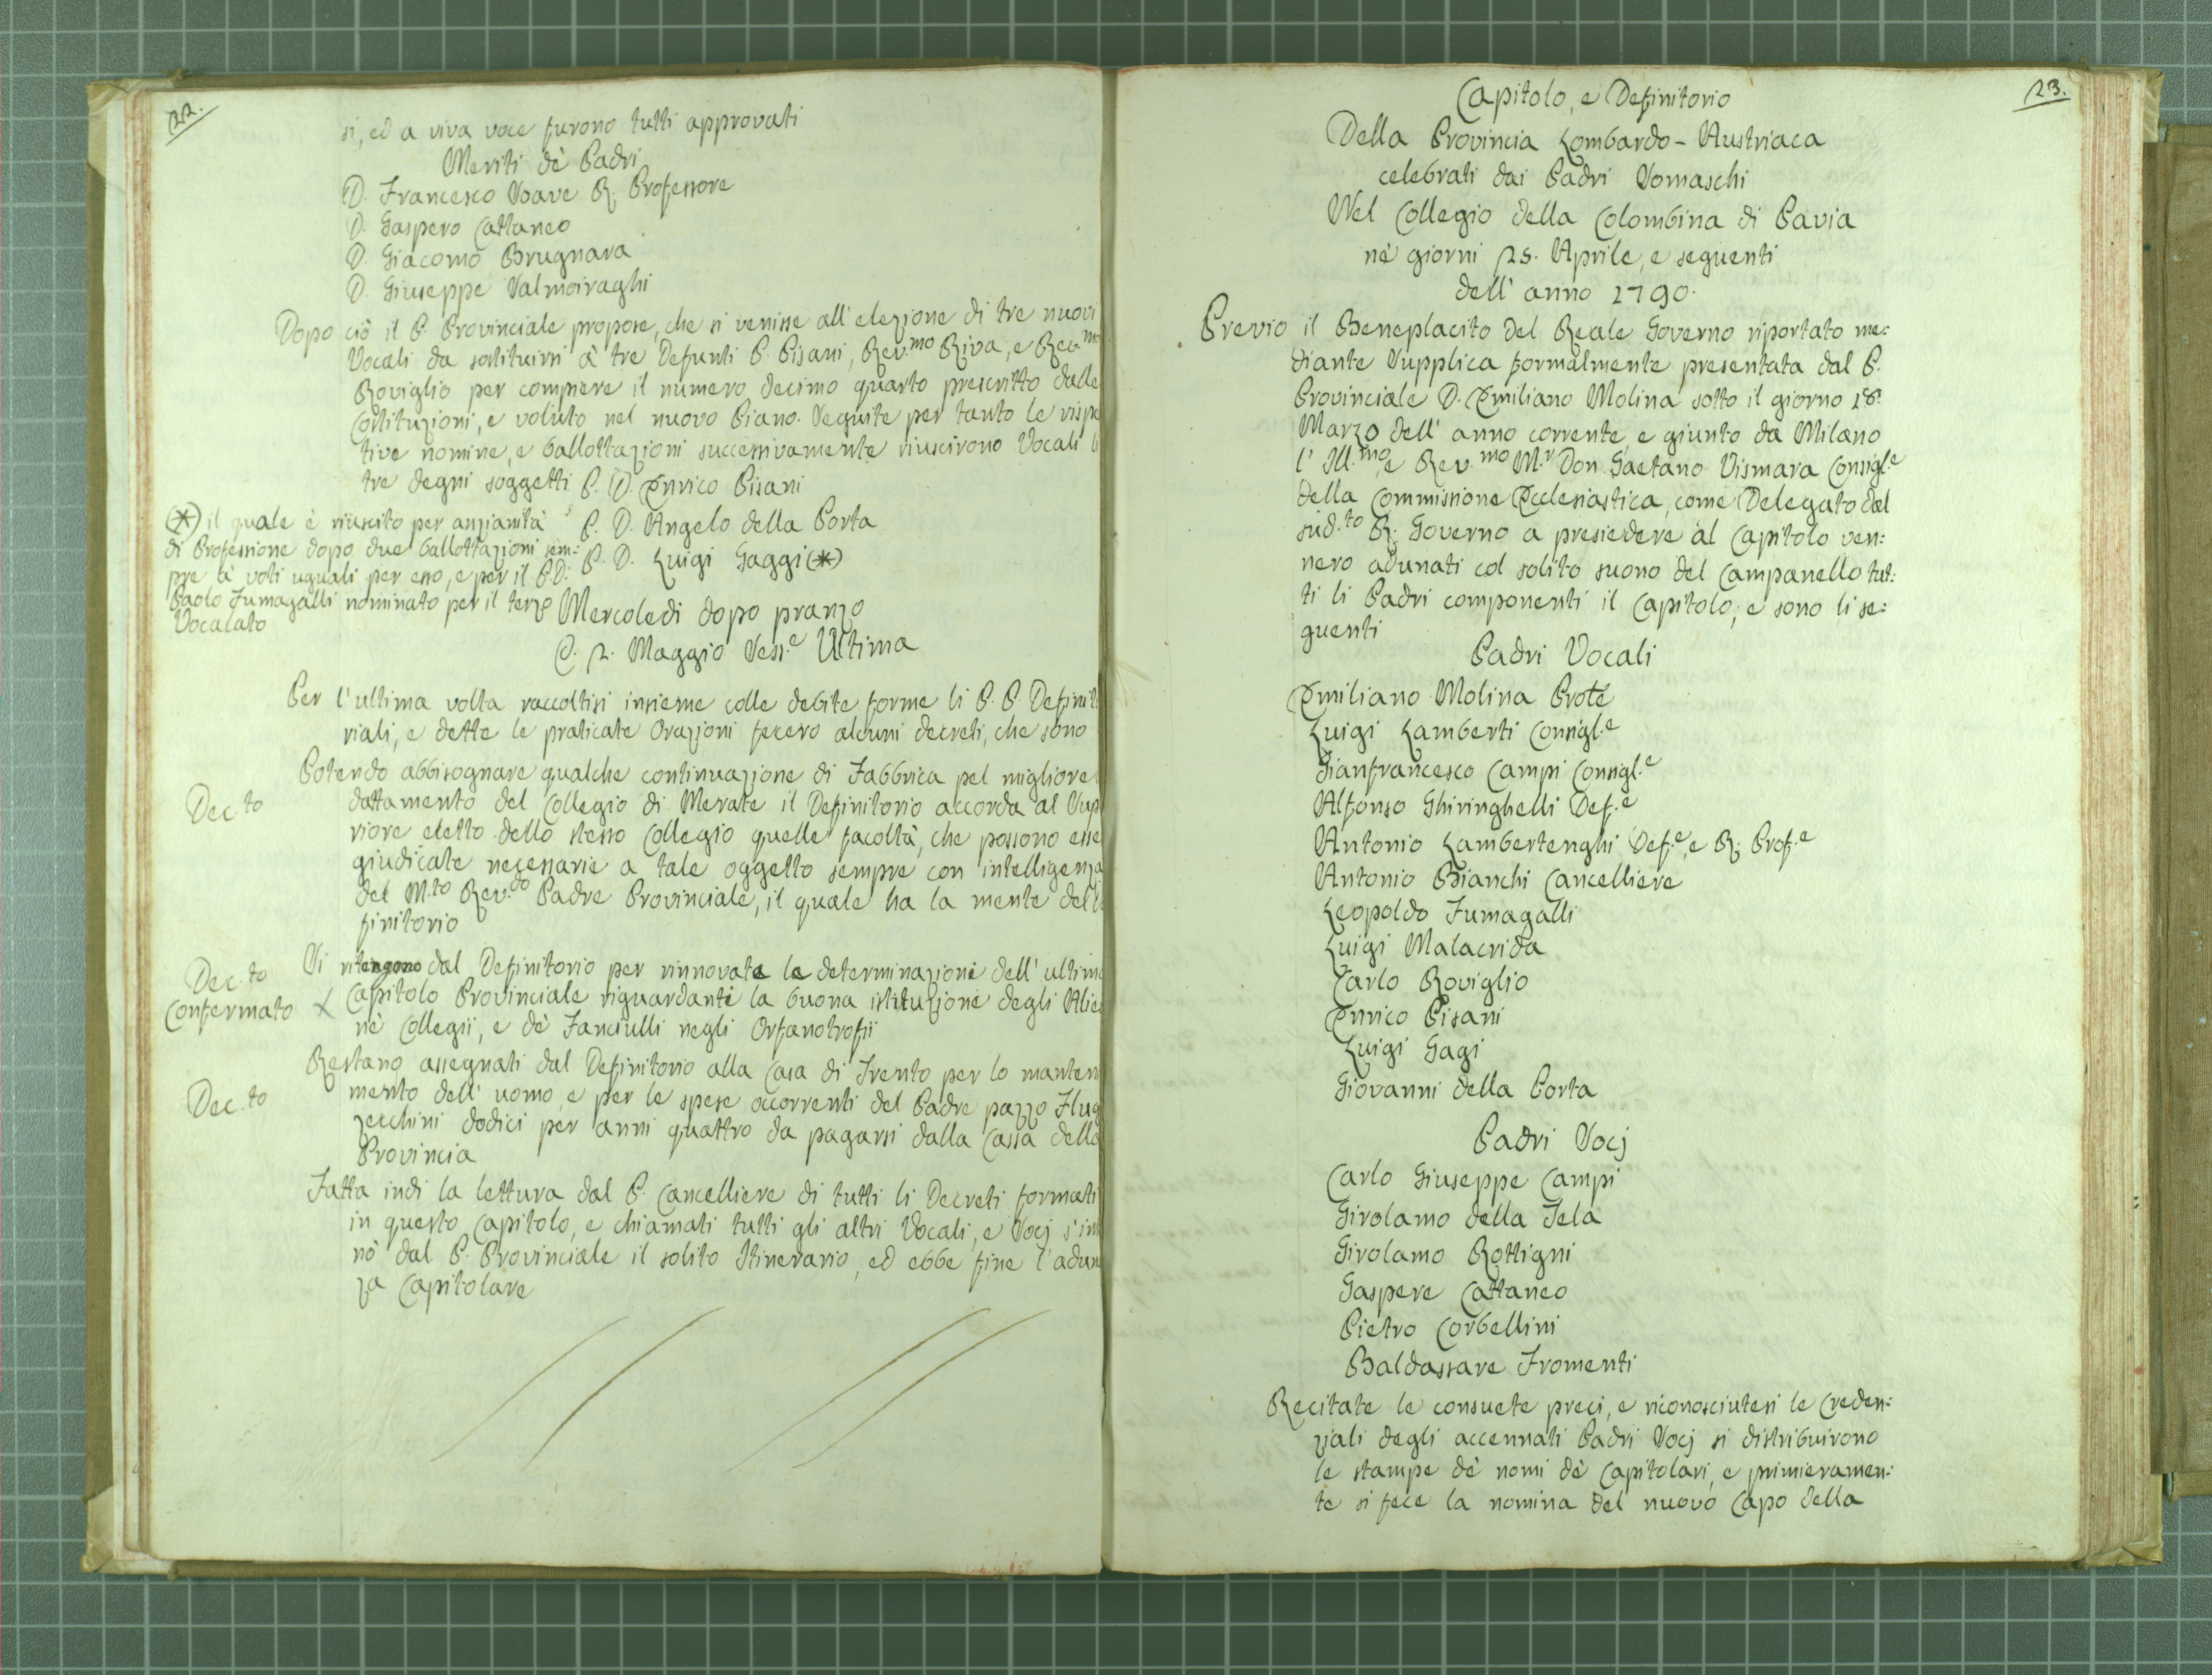 22.
si, ed a viva voce furono tutti approvati
Meriti dè Padri
D. Francesco Soave R. Professore
D. Gaspero Cattaneo
D. Giacomo Brugnara
D. Giuseppe Valmoiraghi
Dopo ciò il P. Provinciale propose, che si venisse all'elezione di tre nuovi
Vocali da sostituirsi à tre Defunti P. Pisani, Rev.mo Riva, e Rev.mo
Roviglio per compiere il numero decimo quarto prescritto dalle
Costituzioni, e voluto nel nuovo Piano. Seguite per tanto le rispe
tive nomine, e ballottazioni successivamente riuscirono Vocali li
tre degni soggetti P. D. Enrico Pisani
P. D. Angelo della Porta
P. D. Luigi Gaggi (*)
(*) il quale è riuscito per anzianità
di Professione dopo due ballottazioni sem:
pre à voti uguali per esso, e per il P.D.
Paolo Fumagalli nominato per il terzo
Vocalato
Mercoledi dopo pranzo
P. 2. Maggio Sess.e Ultima
Per l'ultima volta raccoltisi insieme colle debite forme li P. P. Definito
riali, e dette le praticate Orazioni fecero alcuni decreti, che sono
Dec.to
Potendo abbisognare qualche continuazione di Fabbrica pel migliore
dattamento del Collegio di Merate il Definitorio accorda al Sup
riore eletto dello stesso Collegio quelle facoltà, che possono esse
giudicate necessarie a tale oggetto sempre con intelligenza
del M.to Rev.do Padre Provinciale, il quale ha la mente del
finitorio
Dec.to
Confermato
Si ritengono dal Definitorio per rinnovate le determinazioni dell'ultimo
Capitolo Provinciale riguardanti la buona istituzione degli Alie
nè Collegii, e dè Fanciulli negli Orfanotrofii
Dec.to
Restano assegnati dal Definitorio alla Casa di Trento per lo manten
mento dell'uomo, e per le spese occorrenti del Padre pazzo Flug
zecchini dodici per anni quattro da pagarsi dalla Cassa della
Provincia
Fatta indi la lettura dal P. Cancelliere di tutti li Decreti formati
in questo Capitolo, e chiamati tutti gli altri Vocali, e Socj s'in
nò dal P. Provinciale il solito Itinerario, ed ebbe fine l'adun
za Capitolare
23.
Capitolo, e Definitorio
Della Provincia Lombardo-Austriaca
celebrati dai Padri Somaschi
Nel Collegio della Colombina di Pavia
nè giorni 25. Aprile, e seguenti
dell'anno 1790.
Previo il Beneplacito del Reale Governo riportato me:
diante Supplica formalmente presentata dal P.
Provinciale D. Emiliano Molina sotto il giorno 18.
Marzo dell'anno corrente, e giunto da Milano
l'Ill.mo e Rev.mo M.r Don Gaetano Vismara Consigl.e
della Commissione Ecclesiastica, come Delegato dal
sud.to R. Governo a presiedere al Capitolo ven:
nero adunati col solito suono del Campanello tut:
ti li Padri componenti il Capitolo, e sono li se:
guenti
Padri Vocali
Emiliano Molina Prote
Luigi Lamberti Consigl.e
Gianfrancesco Campi Consigl.e
Alfonso Ghiringhelli Def.e
Antonio Lambertenghi Def.e, e R. Prof.e
Antonio Bianchi Cancelliere
Leopoldo Fumagalli
Luigi Malacrida
Carlo Roviglio
Enrico Pisani
Luigi Gagi
Giovanni della Porta
Padri Socj
Carlo Giuseppe Campi
Girolamo della Tela
Girolamo Rottigni
Gaspere Cattaneo
Pietro Corbellini
Baldassare Fromenti
Recitate le consuete preci, e riconosciutesi le Creden:
ziali degli accennati Padri Socj si distribuirono
le stampe dè nomi dè Capitolari, e primieramen:
te si fece la nomina del nuovo Capo della